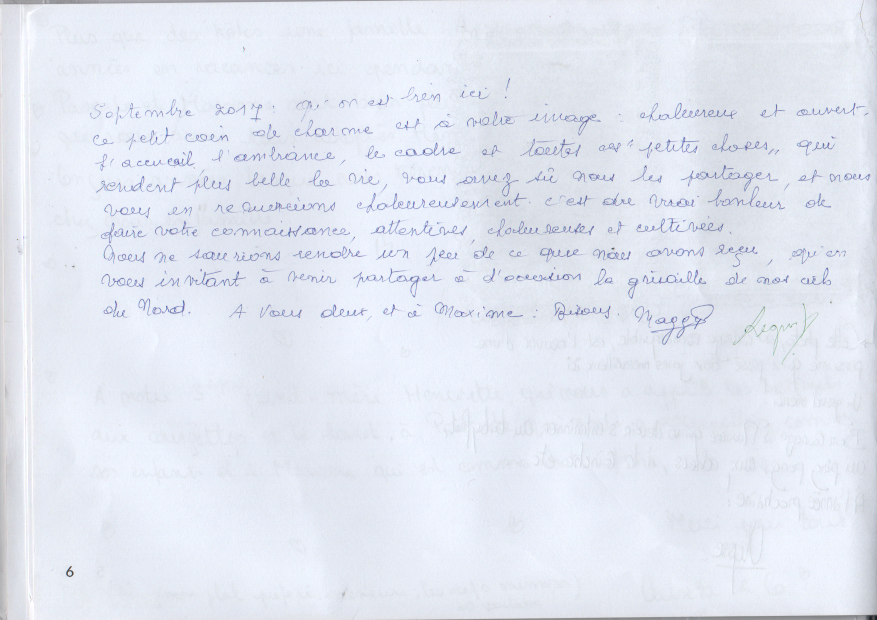 Septembre 2017 : qu'on est bien ici !
ce petit coin de charme est à votre image : chaleureux et ouvert.
L'accueil l'ambiance, le cadre et toutes ces "petites choses,, qui
rendent plus belle la vie, vous avez sû nous les partager, et nous
vous en remercions chaleureusement. c'est du vrai bonheur de
faire votre connaissance, attentives, chaleureuses et cultivées.
Nous ne saurions rendre un peu de ce que nous avons reçu, qu'en
vous invitant à venir partager à l'occasion la grisaille de nos
du Nord. A vous deux, et à Maxime : Bisous.
6